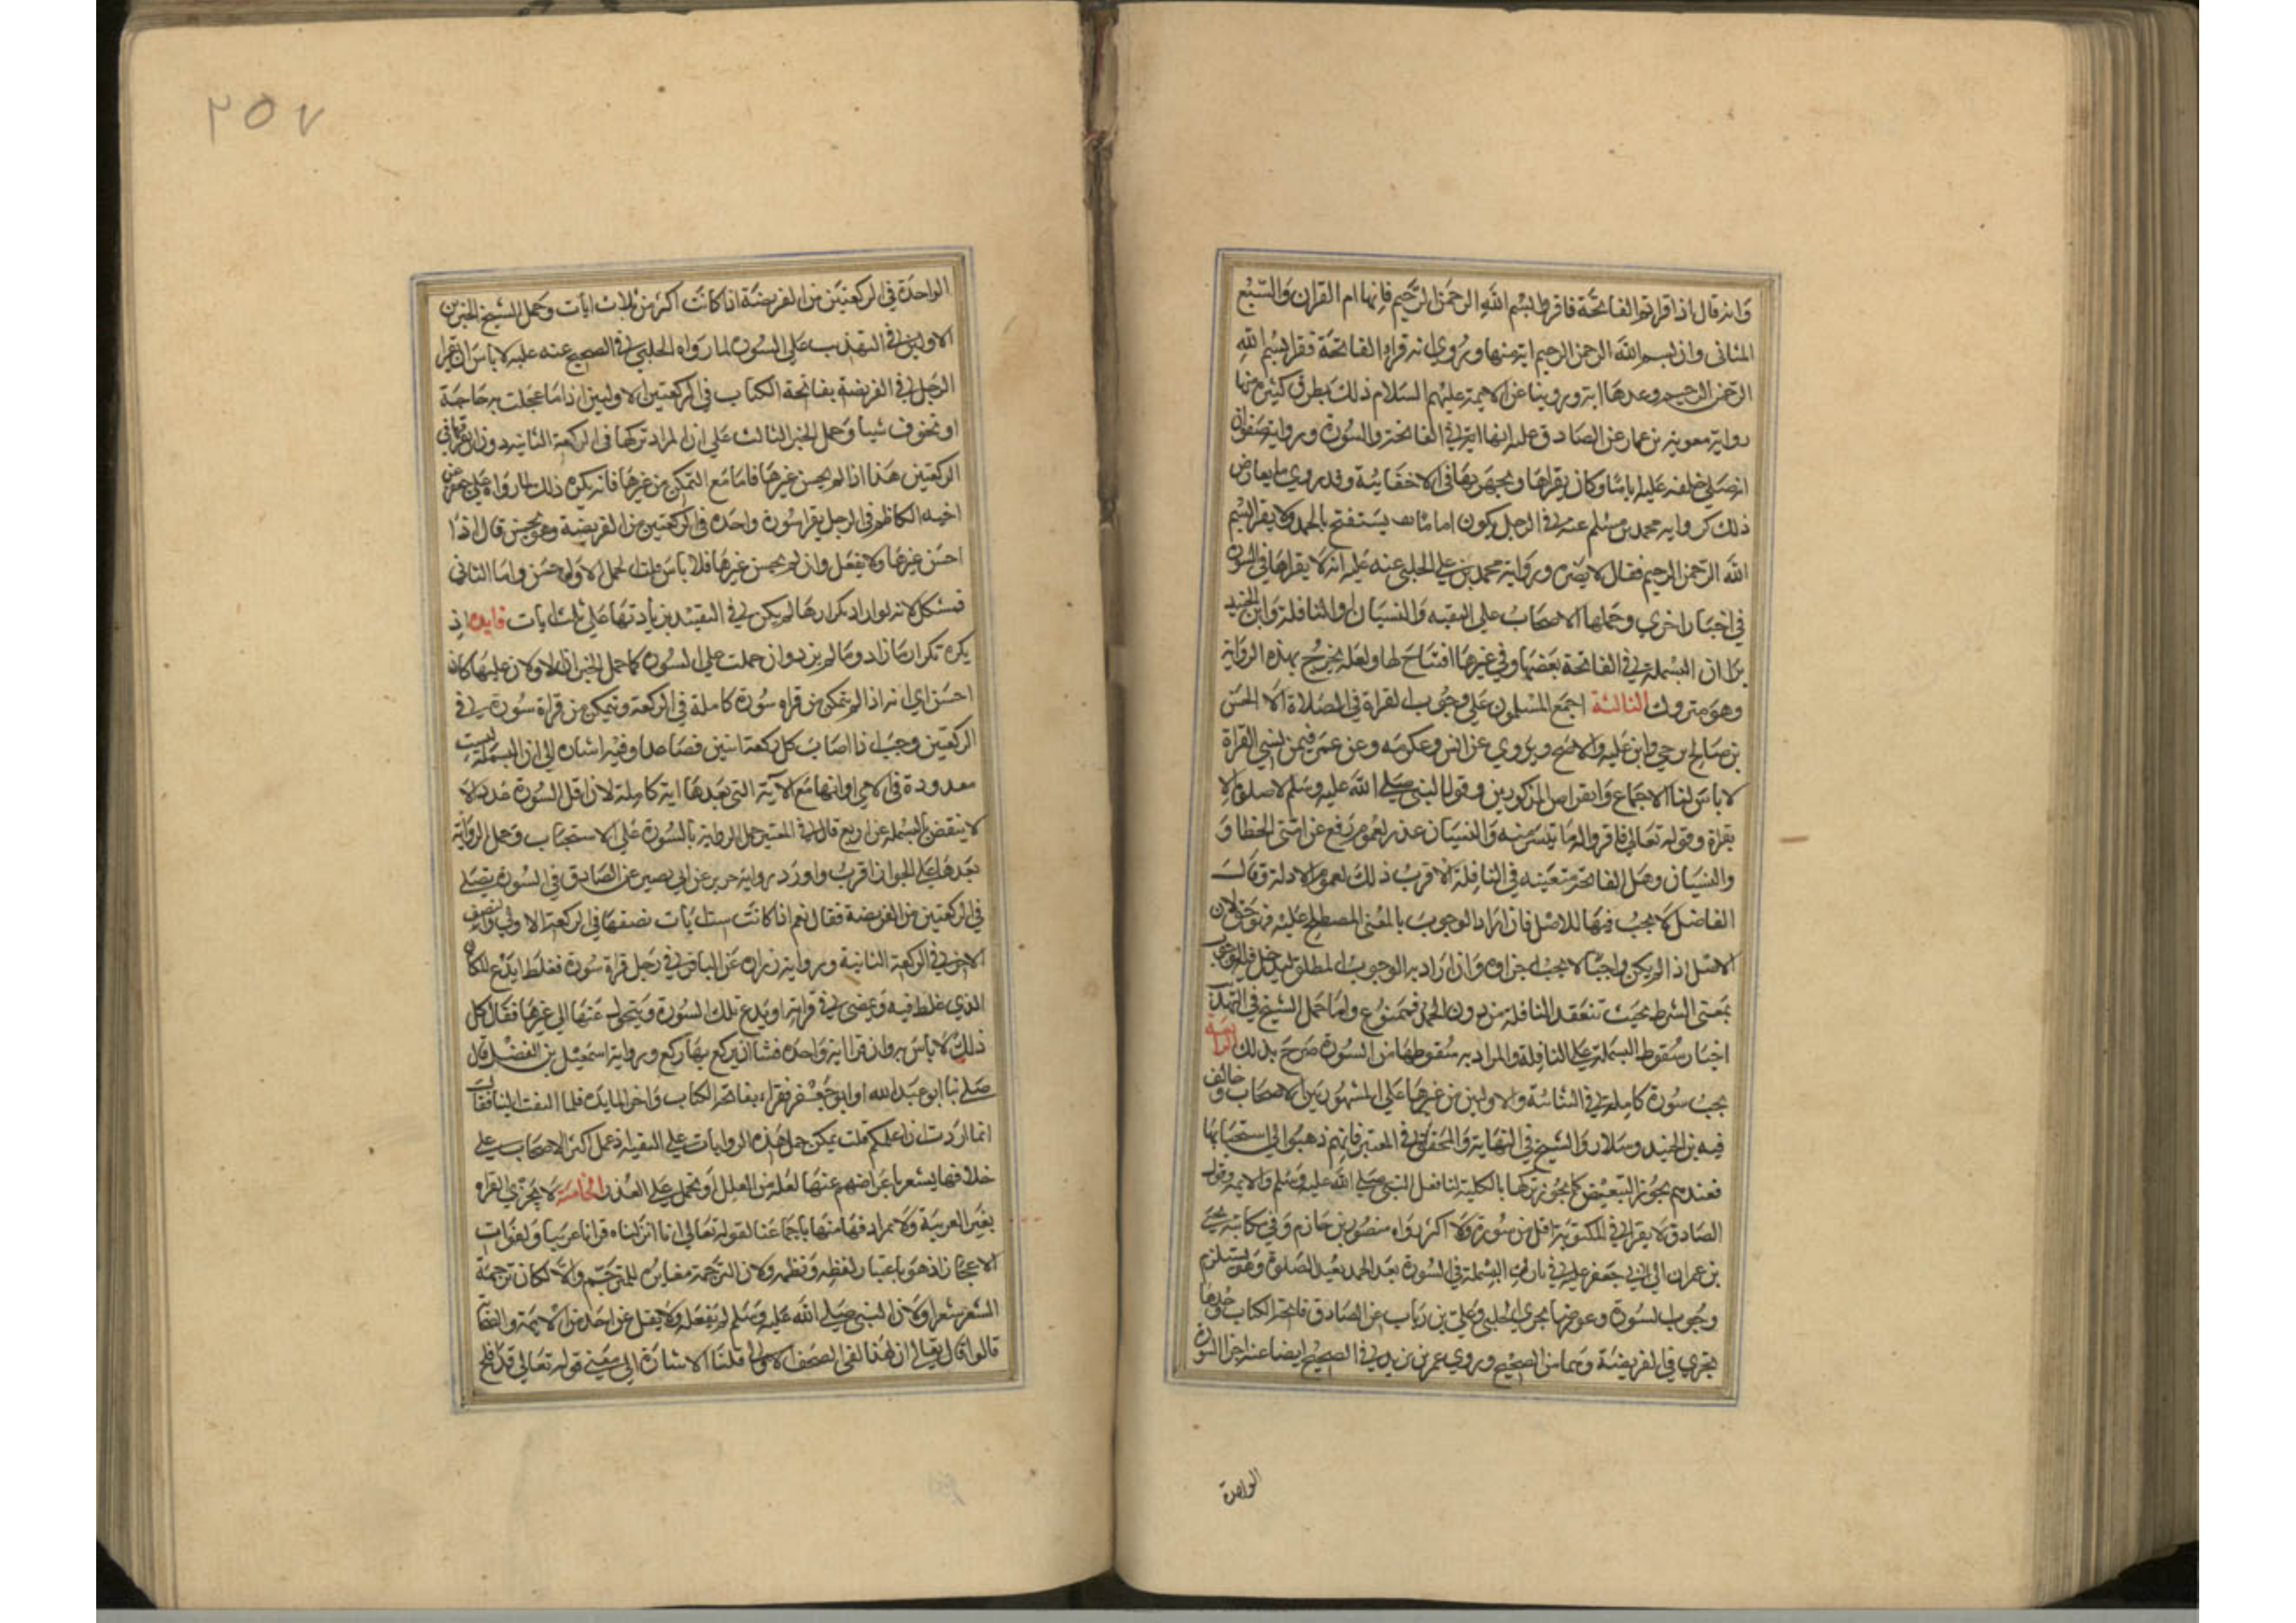 وانه قال اذا قراتم الفاتحة فاقروا بسم الله الرحمن الرحيم فانها ام القران والسبع
المثاني وان بسم الله الرحمن الرحيم اية منها وروي انه قراء الفاتحة فقرا بسم الله
الرحمن الرحيم وعدها اية وروينا عن الايمة عليهم السلام ذلك بطرق كثيرة منها
رواية معوية بن عمار عن الصادق عليه انها اية في الفاتحة والسورة ورواية صفوان
انه صلي خلفه عليه اياما وكان يقراها ويجهر بها في الاخفاتية وقد روي ما يعارض
ذلك كرواية محمد بن مسلم عنه في الرجل يكون اماما يستفتح بالحمد ولا يقرا بسم
الله الرحمن الرحيم فقال لا يضره ورواية محمد بن علي الحلبي عنه عليه انه لا يقراها في السورة
في اخبار اخري وحملها الاصحاب علي التقيه والنسيان او النافلة وابن الجنيد
يرا ان البسملة في الفاتحة بعضها وفي غيرها افتتاح لها ولعله يحتج بهذه الرواية
وهو متروك الثالثة اجمع المسلمون علي وجوب القراة في الصلاة الا الحسن
بن صالح بن حي وابن علية والاصم ويروي عن انس وعكرمه وعن عمر فيمن نسي القراة
لا باس لنا الاجماع وانقراض المذكورين وقول النبي صلي الله عليه وسلم لا صلوة الا
بقراة وقوله تعالي فاقروا ما تيسر منه والنسيان عذر لعموم رفع عن امتي الخطا و
والنسيان وهل الفاتحة متعينه في النافلة الاقرب ذلك لعموم الادلة وقال
الفاضل لا يجب فيها للاصل فان اراد الوجوب بالمعني المصطلح عليه فهو حق لان
الاصل اذا لم يكن واجبا لا يجب اجزاوه وان اراد به الوجوب المطلق ليدخل فيه الوجوب
بمعني الشرط بحيث تنعقد النافلة من دون الحمد فممنوع واما حمل الشيخ في التهذيب
اخبار سقوط البسملة علي النافلة والمراد به سقوطها من السورة صرح بذلك الرابعة
يجب سورة كاملة في الثنائية والاوليين من غيرها علي المشهور بين الاصحاب وخالف
فيه بن الجنيد وسلار والشيخ في النهاية والمحقق في المعتبر فانهم ذهبوا الي استحبابها
فعندهم يجوز التبعيض كما يجوز تركها بالكلية لنا فعل النبي صلي الله عليه وسلم والايمة وقول
الصادق لا يقرا في المكتوبة اقل من سورة ولا اكثر رواه منصور بن حازم وفي مكاتبة يحيي
بن عمران الي ابي جعفر عليه في تارك البسملة في السورة بعد الحمد يعيد الصلوة وهو يستلزم
وجوب السورة وعورضها بخبري الحلبي وعلي بن رياب عن الصادق فاتحة الكتاب وحدها
تجزي في الفريضة وهما من الصحيح وروي عمر بن يزيد في الصحيح ايضا عنه اجزا السورة
الواحدة
٢٥٧
الواحدة في الركعتين من الفريضة اذا كانت اكثر من ثلاث ايات وحمل الشيخ الخبرين
الاولين في التهذيب علي السورة لما رواه الحلبي في الصحيح عنه عليه لا باس ان يقرا
الرجل في الفريضة بفاتحة الكتاب في الركعتين الاوليين اذا ما عجلت به حاجة
او تخوف شيا وحمل الخبر الثالث علي ان المراد تركها في الركعة الثانية دون ان يقراها في
الركعتين هذا اذا لم يحسن غيرها فاما مع التمكن من غيرها فانه يكره ذلك لما رواه علي بن جعفر عن
اخيه الكاظم في الرجل يقرا سورة واحدة في الركعتين من الفريضة وهو يحسن قال اذا
احسن غيرها ولا يفعل وان لم يحسن غيرها فلا باس قلت الحمل الاول حسن واما الثاني
فمشكل لانه لو اراد تكرارها لم يكن في التقييد بزيادتها علي ثلث ايات فايدة اذ
يكره تكرار ما زاد وما لم يزد وان حملت علي السورة كما حمل الخبران الاولان عليها كان
احسن اي انه اذا لم يتمكن من قراه سورة كاملة في الركعة ويتمكن من قراة سورة في
الركعتين وجب اذا اصاب كل ركعة اثنين فصاعدا وفيه اشارة الي ان البسملة ليست
معدودة في الاي او انها مع الاية التي بعدها اية كاملة لان اقل السورة عددا لا
لا ينقص بالبسملة عن اربع قال في المعتبر حمل الرواية بالسورة علي الاستحباب وحمل الرواية
بعدها علي الجواز اقرب واورد رواية حريز عن ابي بصير عن الصادق في السورة يصلي
في الركعتين من الفريضة فقال نعم اذا كانت ست ايات نصفها في الركعة الاولي والنصف
الاخر في الركعة الثانية ورواية زرارة عن الباقر في رجل قراة سورة فغلط ايدع المكان
الذي غلط فيه ويمضي في قراته او يدع تلك السورة ويتحول عنها الي غيرها فقال كل
ذلك لا باس به وان قرا اية واحدة فشا ان يركع بها ركع ورواية اسمعيل بن الفضل قال
صلي بنا ابو عبد الله او ابو جعفر فقراء بفاتحة الكتاب واخر المايده فلما التفت الينا فقال
انما اردت ان اعلمكم قلت يمكن حمل هذه الروايات علي التقية اذ عمل اكثر الاصحاب علي
خلافها يشعر باعراضهم عنها لعلة من العلل او تحمل علي العذر الخامسة لا يجزي القراة
بغير العربية ولا مرادفها منها باجماعنا لقوله تعالي انا انزلناه قرانا عربيا ولفوات
الاعجاز اذ هو باعتبار لفظه ونظمه ولان الترجمة مغايرة للمترجم والا لكان ترجمة
الشعر شعرا ولان النبي صلي الله عليه وسلم لم يفعله ولا نقل عن احد من الايمة والصحابة
قالوا قال تعالي ان هذا لفي الصحف الاولي قلنا الاشارة الي معني قوله تعالي قد افلح